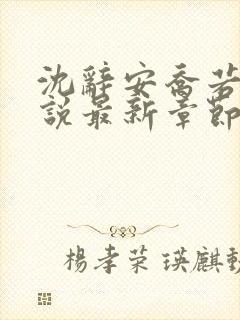 沈辭安喬若
說最新章節
楊孝荣 瑛麒